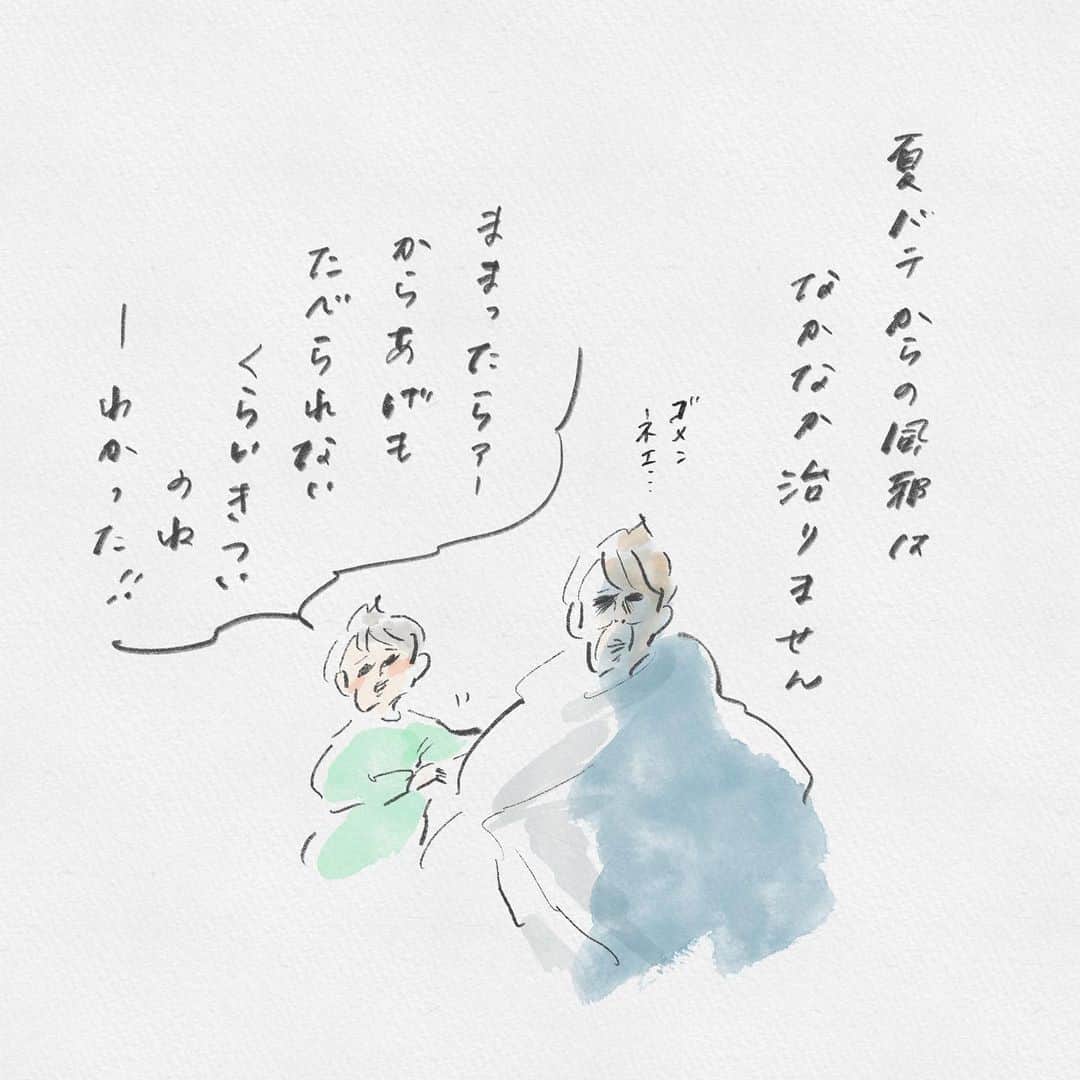 夏バテからの風邪は
なかなか治りません
ゴメン
ネエ…
ままったらァー
からあげも
たべられない
くらいきつい
のね
ーわかった!!